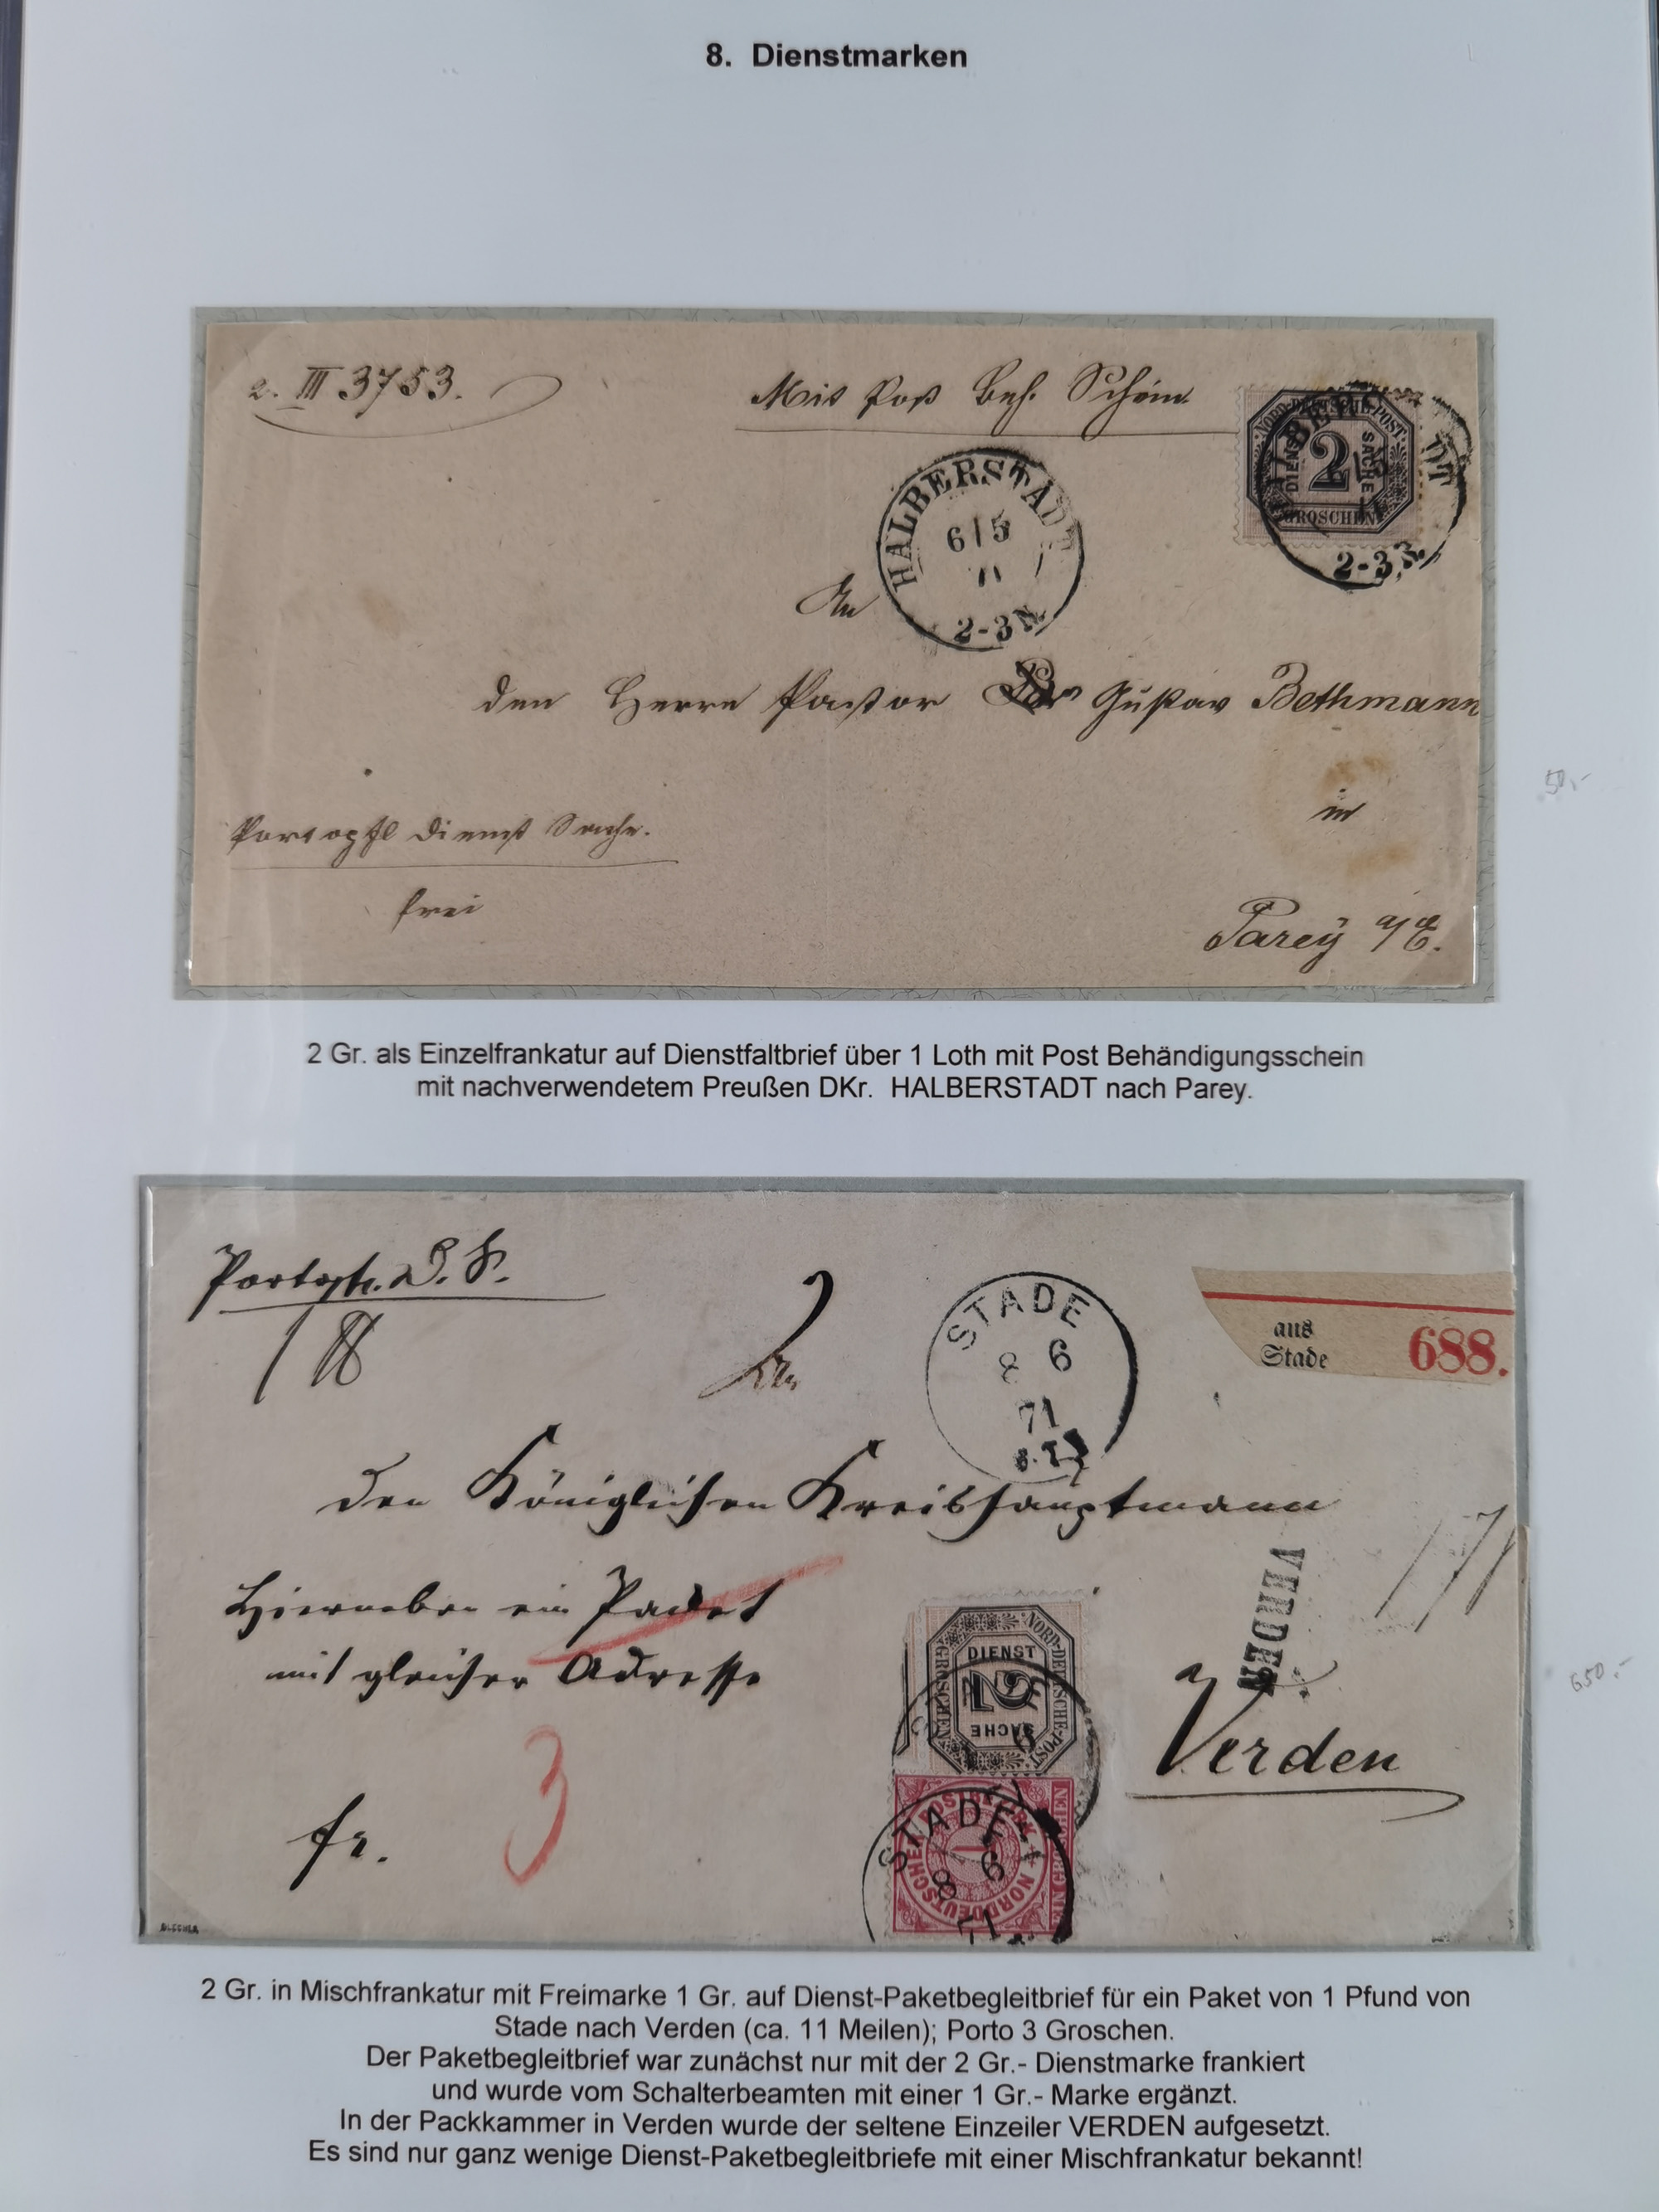 8. Dienstmarken
2. III 3753.
Mit Post Beh. Schein
NORDDEUTSCHE POST
DIENST
2
SACHE
GROSCHEN
2-3N
HALBERSTADT
6 5
71
2-3N
An
den Herrn Pastor Gustav Bethmann
in
Portopfl Dienst Sache.
frei
Parey a/E.
50,-
2 Gr. als Einzelfrankatur auf Dienstfaltbrief über 1 Loth mit Post Behändigungsschein
mit nachverwendetem Preußen DKr. HALBERSTADT nach Parey.
Portopfl. D. S.
STADE
8 6
71
aus
Stade
688.
den Königlichen Kreishauptmann
Hierneben ein Packet
mit gleicher Adresse
VERDEN
NORDDEUTSCHE-POST
DIENST
2
SACHE
GROSCHEN
Verden
3
fr.
NORDDEUTSCHER POSTBEZIRK
STADE
8 6
71
650,-
2 Gr. in Mischfrankatur mit Freimarke 1 Gr. auf Dienst-Paketbegleitbrief für ein Paket von 1 Pfund von
Stade nach Verden (ca. 11 Meilen); Porto 3 Groschen.
Der Paketbegleitbrief war zunächst nur mit der 2 Gr.- Dienstmarke frankiert
und wurde vom Schalterbeamten mit einer 1 Gr.- Marke ergänzt.
In der Packkammer in Verden wurde der seltene Einzeiler VERDEN aufgesetzt.
Es sind nur ganz wenige Dienst-Paketbegleitbriefe mit einer Mischfrankatur bekannt!